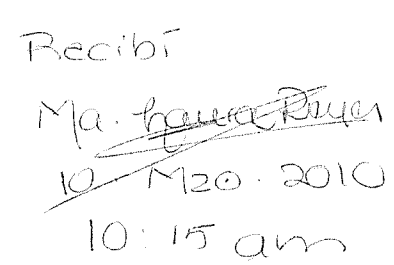 Recibí
Ma. Laura Reyes
10. Mzo. 2010
10:15 am